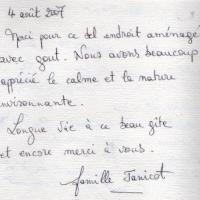 4 août 2007
Merci pour ce bel endroit aménagé
avec gout. Nous avons beaucoup
apprécié le calme et la nature
environnante.
Longue vie à ce beau gîte
et encore merci à vous.
famille Janicot